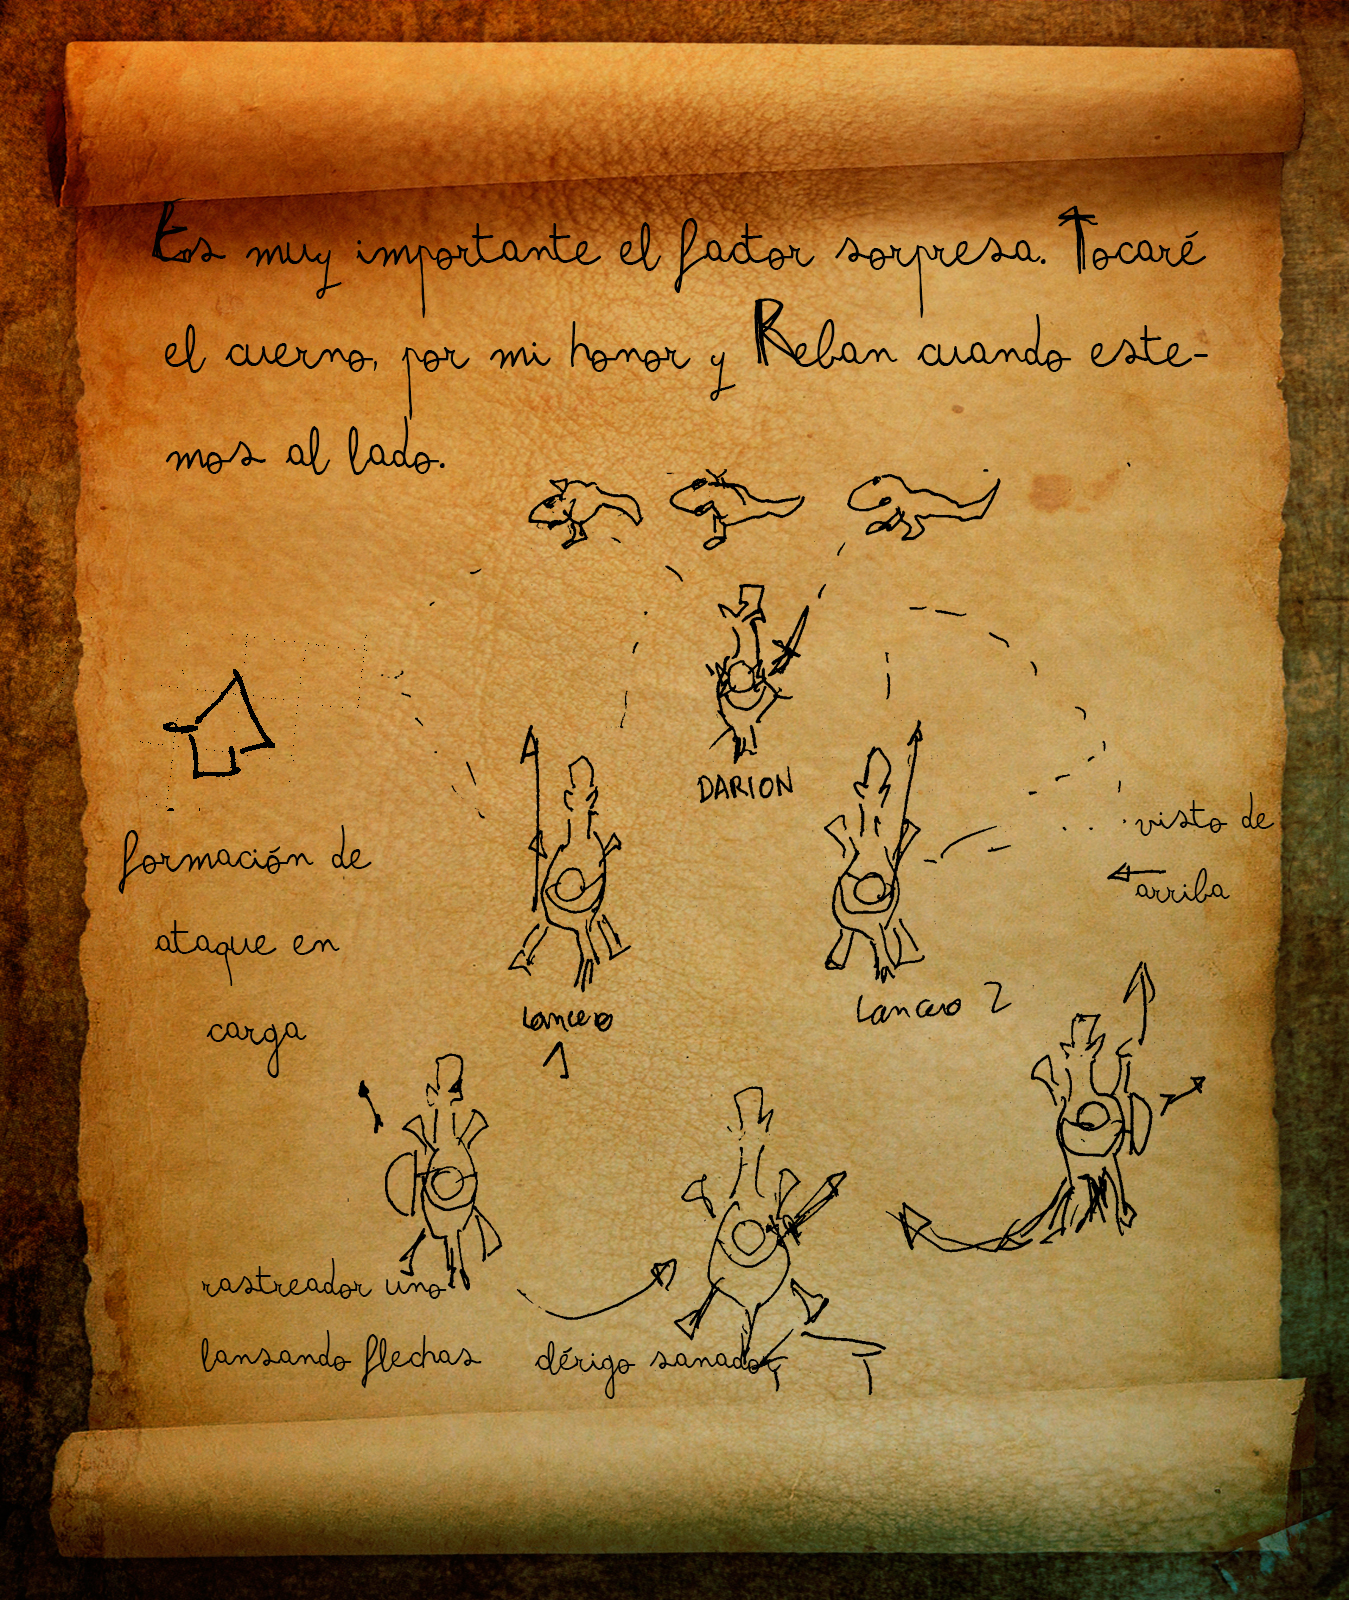 Es muy importante el factor sorpresa. Tocaré
el cuerno, por mi honor y Reban cuando este-
mos al lado.
DARION
visto de
arriba
formación de
ataque en
carga
Lancero
1
Lancero 2
rastreador uno
lansando flechas
clérigo sanador